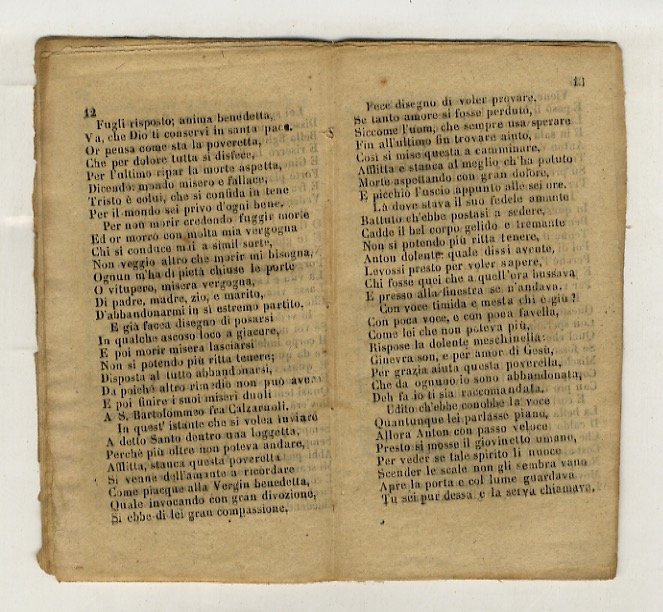 12
Fugli risposto; anima benedetta,
Va, che Dio ti conservi in santa pace.
Or pensa come sta la poveretta,
Che per dolore tutta si disfece,
Per l'ultimo ripar la morte aspetta,
Dicendo: mondo misero e fallace,
Tristo è colui, che si confida in tene
Per il mondo sai privo d'ogni bene.
Per non morir credendo fuggir morte
Ed or morrò con molta mia vergogna
Chi si conduce mai a simil sorte,
Non veggio altro che morir mi bisogna,
Ognun m'ha di pietà chiuse le porte
O vitupero, misera vergogna,
Di padre, madre, zio, e marito,
D'abbandonarmi in sì estremo partito.
E già facea disegno di posarsi
In qualche ascoso loco a giacere,
E poi morir misera lasciarsi
Non si potendo più ritta tenere;
Disposta al tutto abbandonarsi,
Da poichè altro rimedio non può avere
E poi finire i suoi miseri duoli
A S. Bartolommeo fra Calzaruoli.
In quest' istante che si volea inviare
A detto Santo dentro una loggetta,
Perchè più oltre non poteva andare,
Afflitta, stanca questa poveretta
Si venne dell'amante a ricordare
Come piacque alla Vergin benedetta,
Quale invocando con gran divozione,
Si ebbe di lei gran compassione,
13
Fece disegno di voler provare,
Se tanto amore si fosse perduto,
Siccome l'uom, che sempre usa sperare
Fin all'ultimo fin trovare aiuto,
Così si mise questa a camminare,
Afflitta e stanca al meglio ch'ha potuto
Morte aspettando con gran dolore,
E picchiò l'uscio appunto alle sei ore.
Là dove stava il suo fedele amante
Battuto ch'ebbe postasi a sedere,
Cadde il bel corpo gelido e tremante
Non si potendo più ritta tenere,
Anton dolente: quale dissi avente,
Levossi presto per voler sapere,
Chi fosse quei che a quell'ora bussava
E presso alla finestra se n'andava.
Con voce timida e mesta chi è giù?
Con poca voce, e con poca favella,
Come lei che non poteva più,
Rispose la dolente meschinella:
Ginevra son, e per amor di Gesù,
Per grazia aiuta questa poverella,
Che da ognuno io sono abbandonata,
Deh fa io ti sia raccomandata.
Udito ch'ebbe conobbe la voce
Quantunque lei parlasse piano,
Allora Anton con passo veloce
Presto si mosse il giovinetto umano,
Per veder se tale spirito li nuoce
Scender le scale non gli sembra vano
Apre la porta e col lume guardava
Tu sei pur dessa e la serva chiamava.